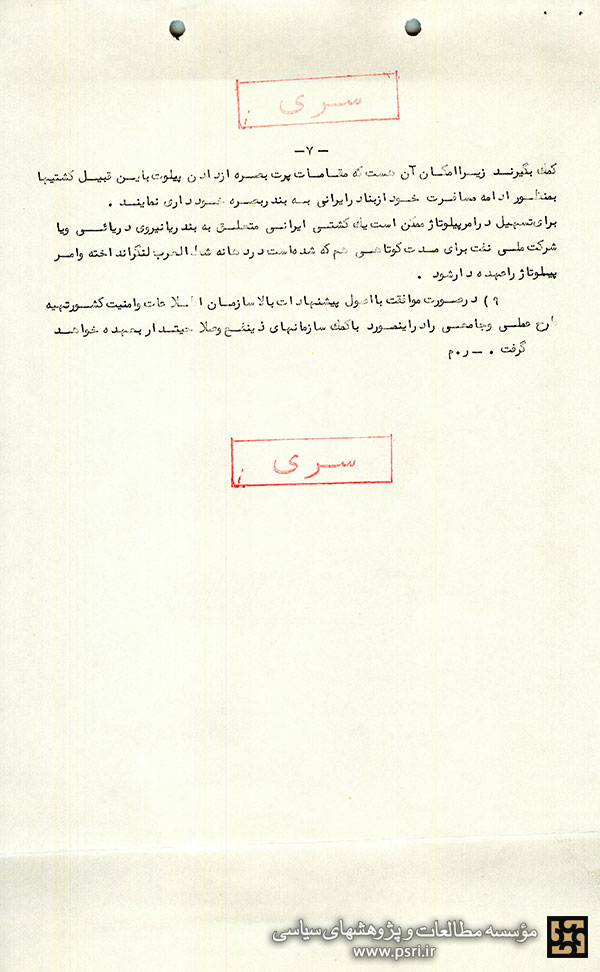 سری
-۷-
كمك بگیرند زیرا امكان آن هست كه مقامات پرت بصره از دادن پیلوت باین قبیل كشتیها
بمنظور ادامه مسافرت خود از بنادر ایرانی به بندر بصره خود داری نمایند .
برای تسهیل در امر پیلوتاژ ممكن است یك كشتی ایرانی متعلق به بندر یا نیروی دریائی ویا
شركت ملی نفت برای مدت كوتاهی هم كه شده است در دهانه شط العرب لنگر انداخته وامر
پیلوتاژ را عهده دار شود .
۹) در صورت موافقت با اصول پیشنهادات بالا سازمان اطلاعات وامنیت كشور تهیه
طرح عملی وجامعی را در اینمورد با كمك سازمانهای ذینفع وصلاحیتدار بعهده خواهد
گرفت . – ر.م
سری
مؤسسه مطالعات و پژوهشهای سیاسی
www.psri.ir